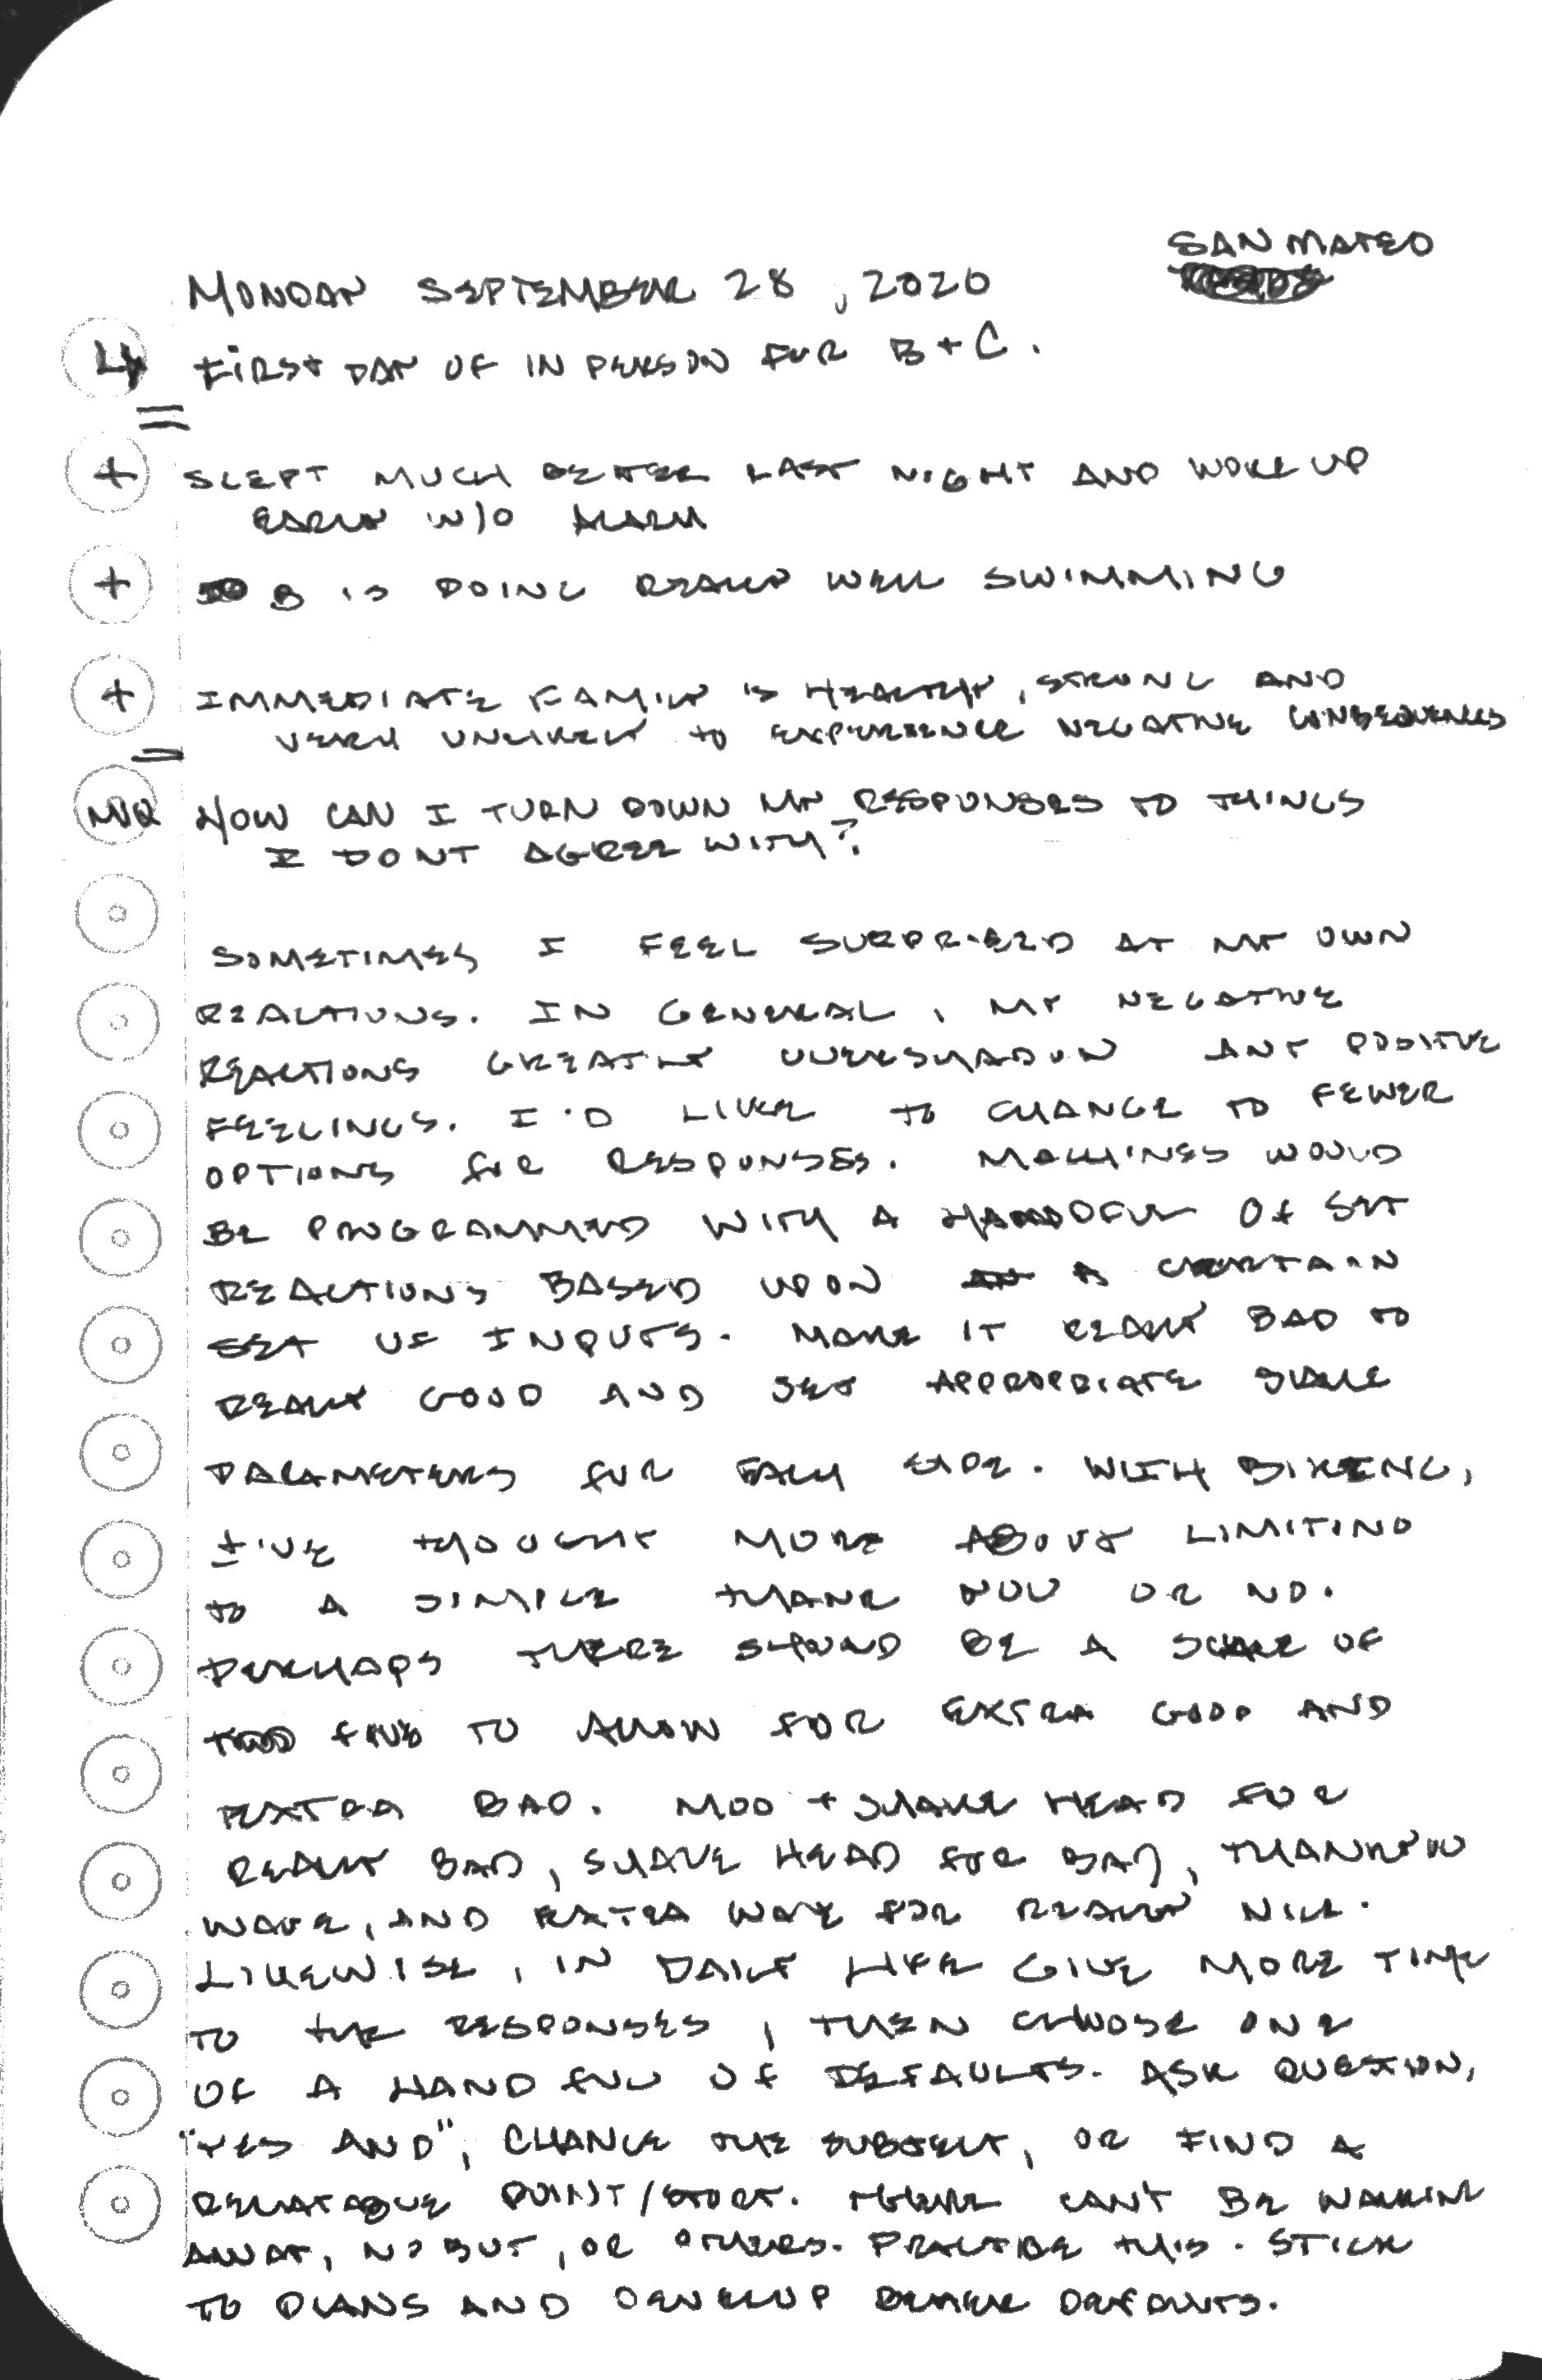 SAN MATEO
MONDAY SEPTEMBER 28, 2020
4 FIRST DAY OF IN PERSON FOR B + C.
+ SLEPT MUCH BETTER LAST NIGHT AND WOKE UP
EARLY W/O ALARM
+ B IS DOING REALLY WELL SWIMMING
+ IMMEDIATE FAMILY IS HEALTHY, STRONG AND
VERY UNLIKELY TO EXPERIENCE NEGATIVE CONSEQUENCES
HOW CAN I TURN DOWN MY RESPONSES TO THINGS
I DONT AGREE WITH?
SOMETIMES I FEEL SURPRISED AT MY OWN
REACTIONS. IN GENERAL, MY NEGATIVE
REACTIONS GREATLY OVERSHADOW ANY POSITIVE
FEELINGS. I'D LIKE TO CHANGE TO FEWER
OPTIONS FOR RESPONSES. MACHINES WOULD
BE PROGRAMMED WITH A HANDFUL OF SET
REACTIONS BASED UPON A CERTAIN
SET OF INPUTS. MAKE IT REALLY BAD TO
REALLY GOOD AND SET APPROPRIATE SCALE
PARAMETERS FOR EACH SIDE. WITH BIKING,
I'VE THOUGHT MORE ABOUT LIMITING
TO A SIMPLE THANK YOU OR NO.
PERHAPS THERE SHOULD BE A SCALE OF
FIVE TO ALLOW FOR EXTRA GOOD AND
EXTRA BAD. MOO + SHAKE HEAD FOR
REALLY BAD, SHAKE HEAD FOR BAD, THANK YOU
WAVE, AND EXTRA WAVE FOR REALLY NICE.
LIKEWISE, IN DAILY LIFE GIVE MORE TIME
TO THE RESPONSES, THEN CHOOSE ONE
OF A HANDFUL OF DEFAULTS. ASK QUESTION,
"YES AND", CHANGE THE SUBJECT, OR FIND A
RELATABLE POINT/STORY. THERE CAN'T BE WALKING
AWAY, NO BUT, OR OTHERS. PRACTICE THIS. STICK
TO PLANS AND DEVELOP BETTER DEFAULTS.